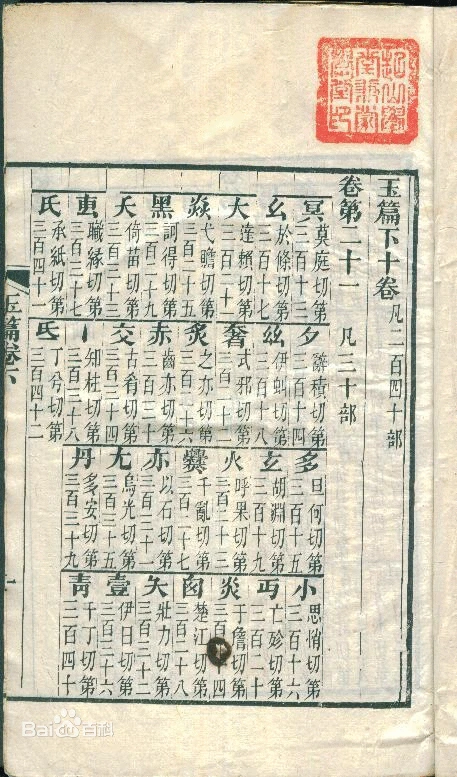 玉篇下十卷 凡二百四十部
卷第二十一 凡三十部
冥 莫庭切第三百一十三
夕 辭積切第三百一十四
多 旦何切第三百一十五
小 思悄切第三百一十六
幺 於條切第三百一十七
𢆶 伊虯切第三百一十八
玄 胡淵切第三百一十九
丏 亡殄切第三百二十
大 達賴切第三百二十一
奢 式邪切第三百二十二
火 呼果切第三百二十三
炎 于詹切第三百十四
焱 弋贍切第三百二十五
炙 之亦切第三百二十六
爨 千亂切第三百二十七
囪 楚江切第三百二十八
黑 訶得切第三百二十九
赤 齒亦切第三百三十
亦 以石切第三百三十一
夨 壯力切第三百三十二
夭 倚苗切第三百三十三
交 古肴切第三百三十四
尢 烏光切第三百三十五
壹 伊日切第三百三十六
叀 職緣切第三百三十七
丨 知杜切第三百三十八
丹 多安切第三百三十九
青 千丁切第三百四十
氏 承紙切第三百四十一
氐 丁兮切第三百四十二
玉篇卷
Bai百科